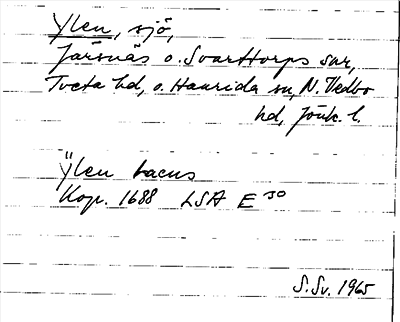 Ylen, sjö,
Järsnäs o. Svarttorps snr,
Tveta hd, o. Haurida sn, N. Vedbo
hd, Jönk. l.
Ÿlen Lacus
Kop. 1688 LSA E 30
S.Sv. 1965